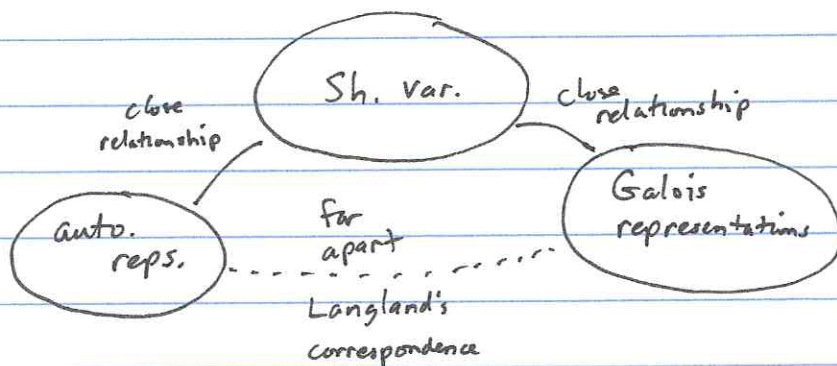 Sh. var.
close
relationship
close
relationship
auto.
reps.
far
apart
Galois
representations
Langland's
correspondence